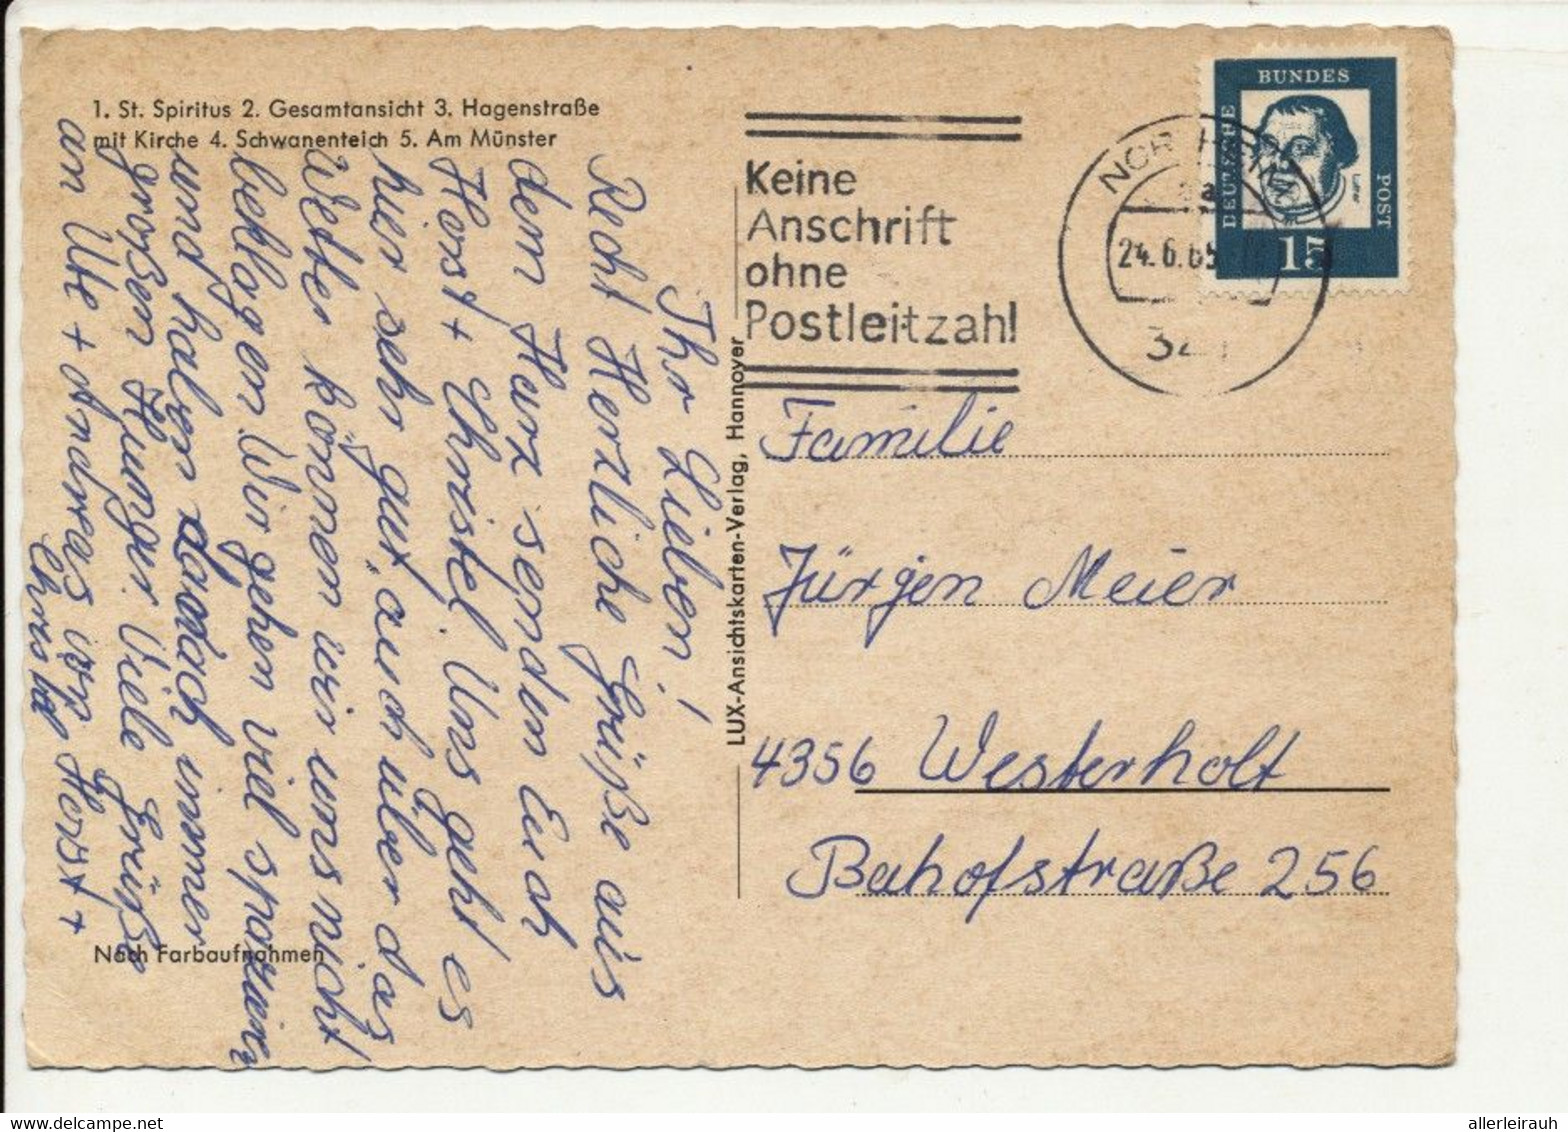 1. St. Spiritus 2. Gesamtansicht 3. Hagenstraße
mit Kirche 4. Schwanenteich 5. Am Münster
Ihr Lieben!
Recht Herzliche Grüße aus
dem Harz senden Euch
Horst + Christel. Uns geht es
hier sehr gut, auch über das
Wetter können wir uns nicht
beklagen. Wir gehen viel spazieren
und haben danach immer
großen Hunger. Viele Grüße
an Ute + Andreas von Horst +
Christel
Nach Farbaufnahmen
LUX-Ansichtskarten-Verlag, Hannover
Keine
Anschrift
ohne
Postleitzahl
24.6.65
DEUTSCHE
BUNDES
POST
Luther
15
Familie
Jürgen Meier
4356 Westerholt
Bahofstraße 256
allerleirauh